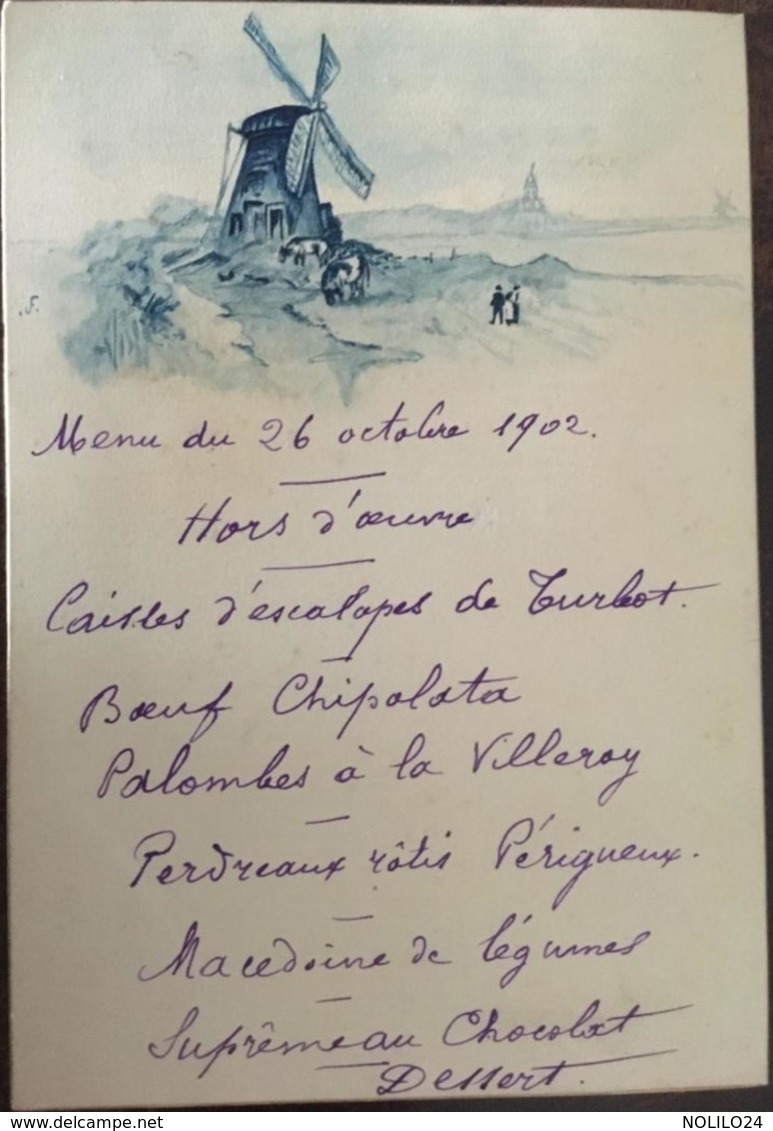 .F.
Menu du 26 octobre 1902.
Hors d'œuvre
Caisses d'escalopes de Turbot.
Bœuf Chipolata
Palombes à la Villeroy
Perdreaux rôtis Périgueux.
Macedoine de légumes
Suprême au Chocolat
Dessert.
NOLILO24